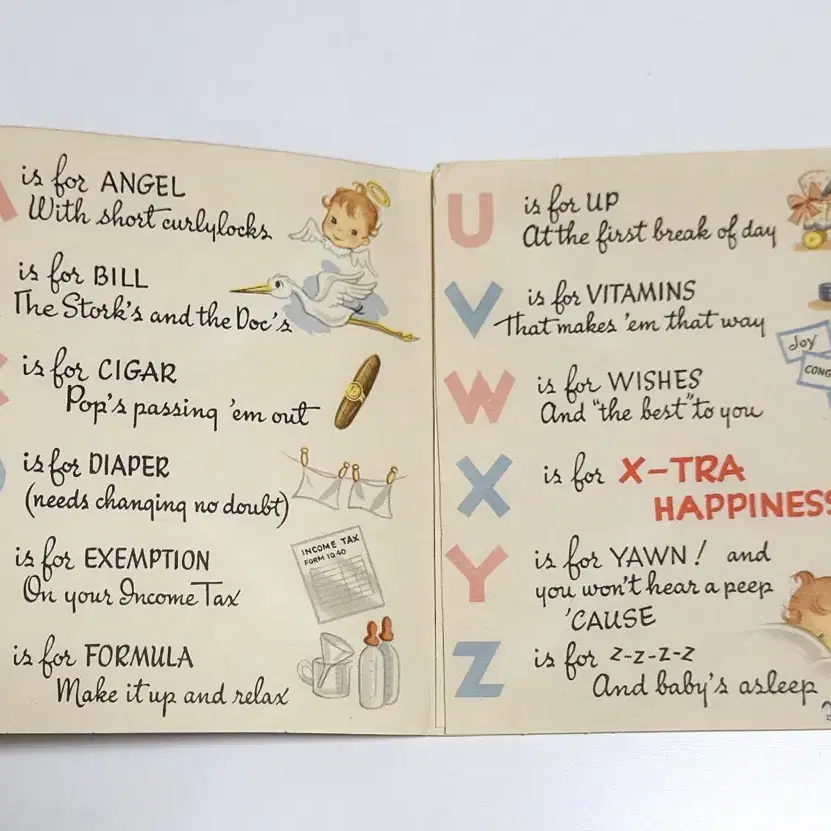 is for ANGEL
With short curlylocks
is for BILL
The Stork's and the Doc's
is for CIGAR
Pop's passing 'em out
is for DIAPER
(needs changing no doubt)
is for EXEMPTION
On your Income Tax
INCOME TAX
FORM 1040
is for FORMULA
Make it up and relax
U is for UP
At the first break of day
V is for VITAMINS
That makes 'em that way
Joy
CONG
W is for WISHES
And "the best" to you
X is for X-TRA
HAPPINESS
Y is for YAWN! and
you won't hear a peep
'CAUSE
Z is for Z-Z-Z-Z
And baby's asleep